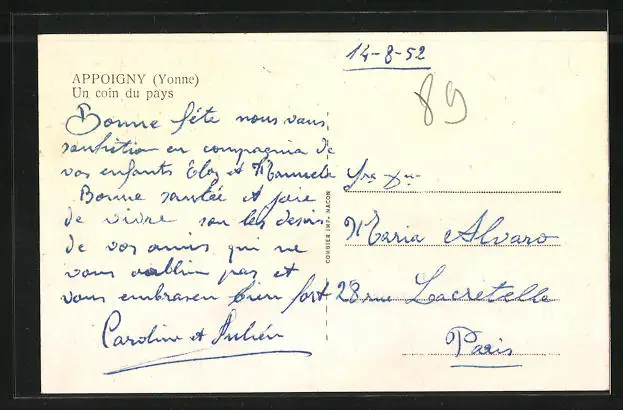 14-8-52
APPOIGNY (Yonne)
Un coin du pays
89
Bonne fête nous vous
souhetion en compagnia de
vos enfants Eloy et Manuela
Bonne santée et joie
de vivre son les desirs
de vos amis qui ne
vous oublin pas et
vous embrasen bien fort
Caroline et Julien
COMBIER IMP. MACON
Sra Dna
Maria Alvaro
28 rue Lacretelle
Paris